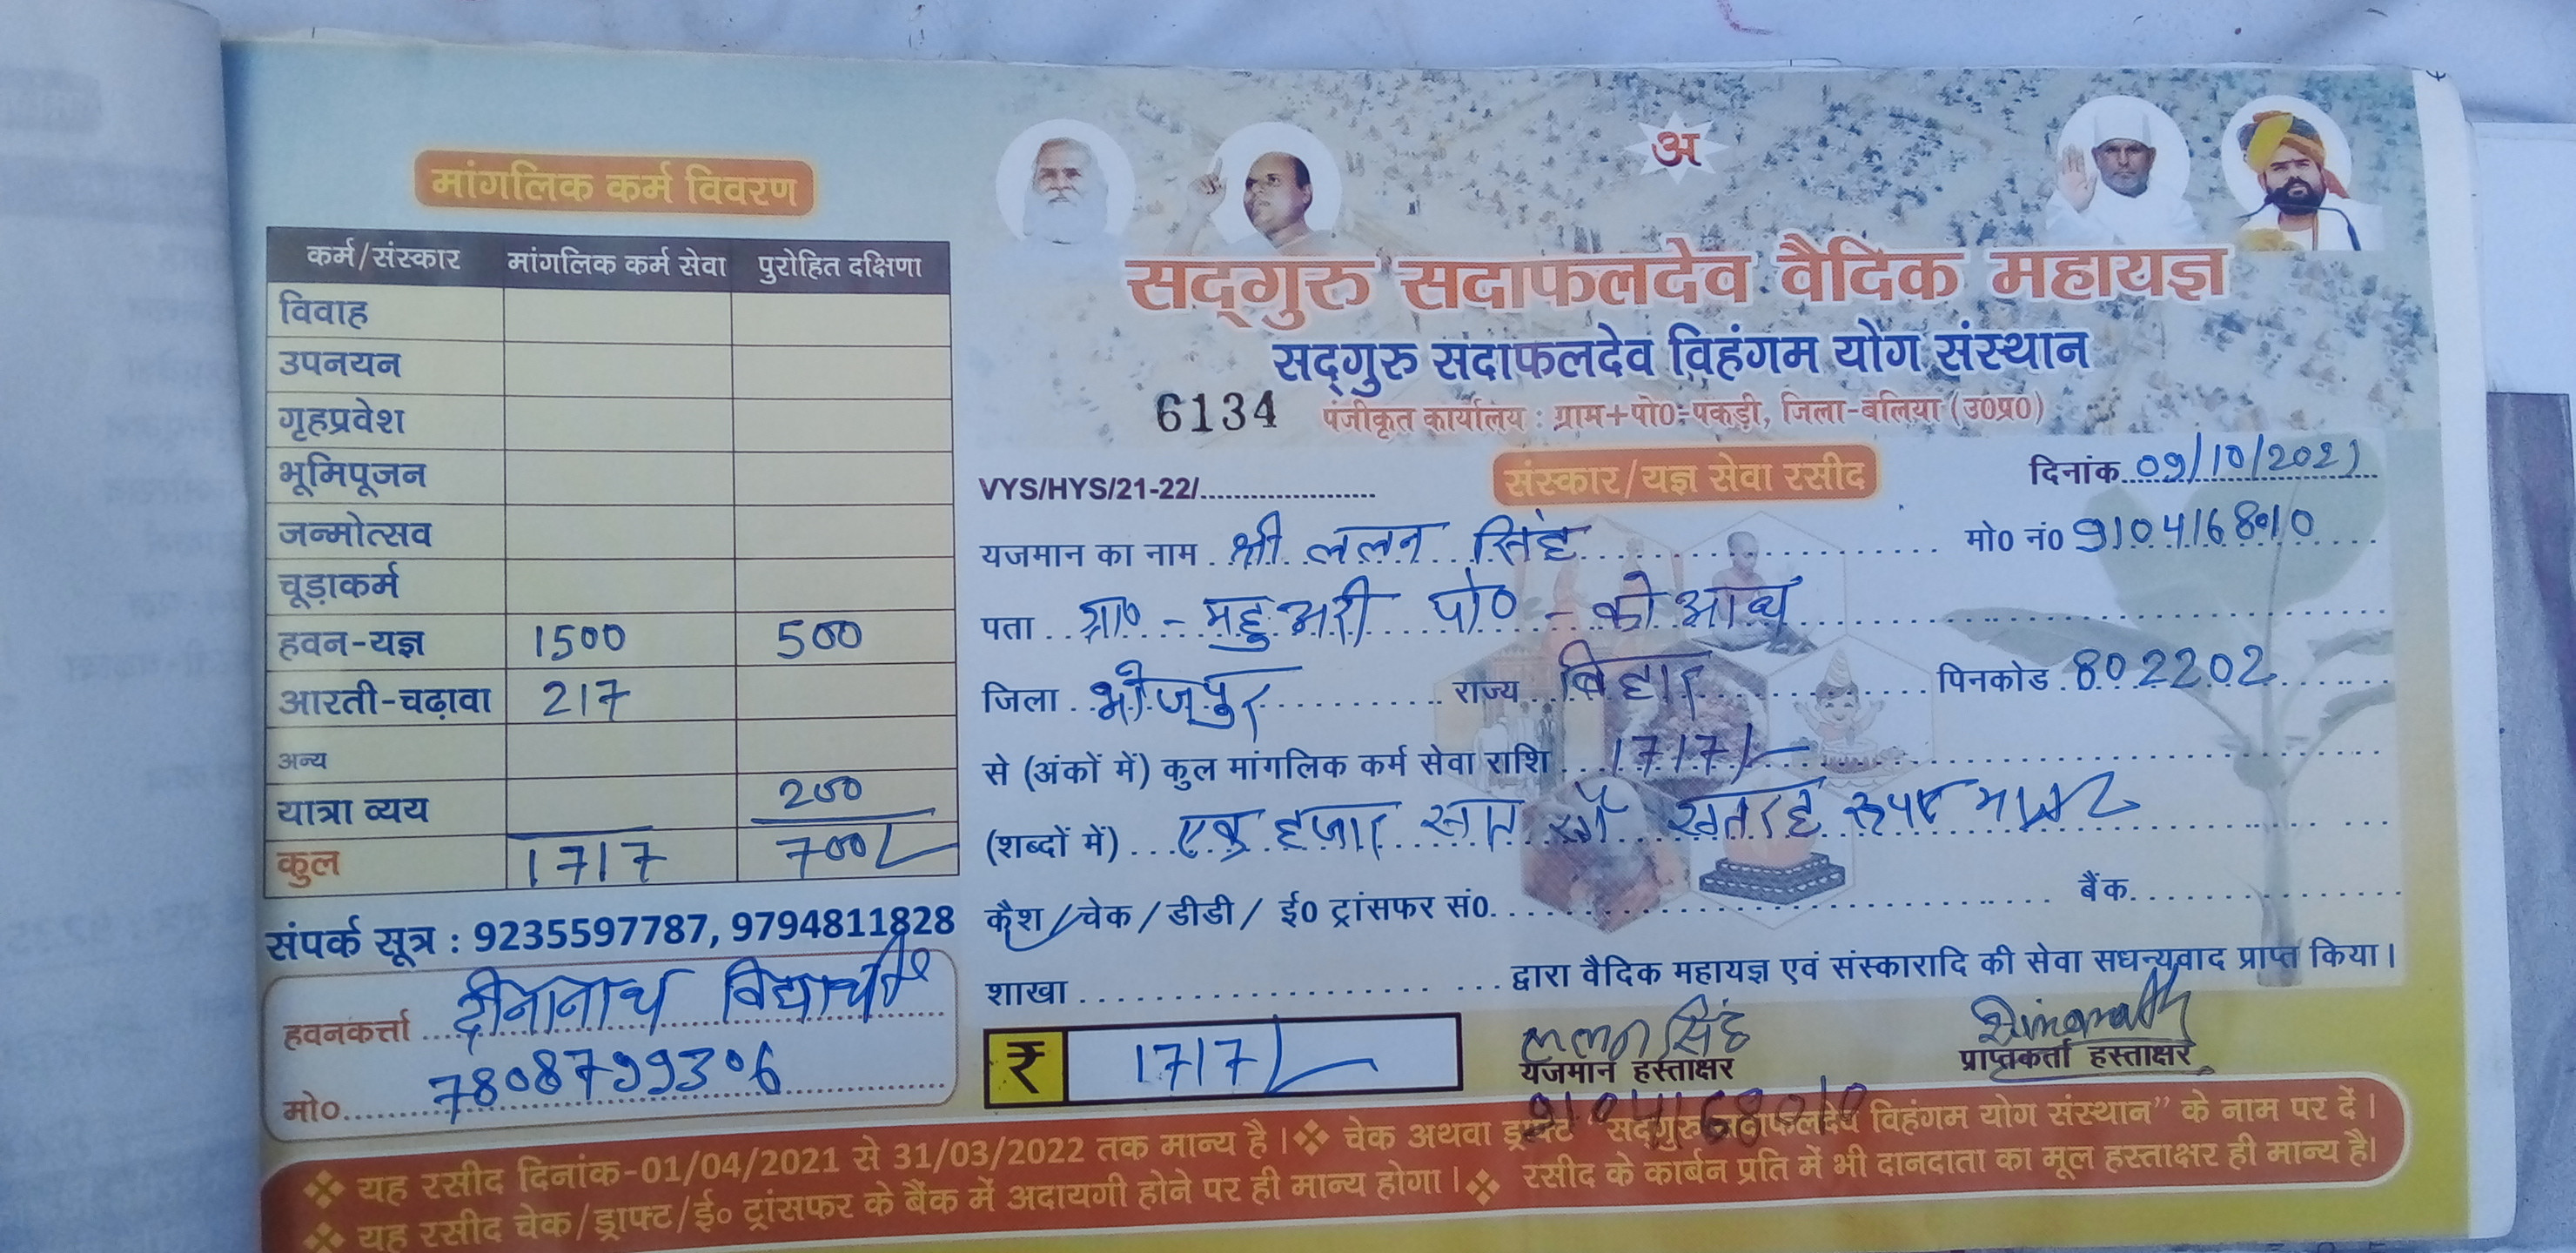 मांगलिक कर्म विवरण
कर्म/संस्कार मांगलिक कर्म सेवा पुरोहित दक्षिणा
विवाह
उपनयन
गृहप्रवेश
भूमिपूजन
जन्मोत्सव
चूड़ाकर्म
हवन-यज्ञ 1500 500
आरती-चढ़ावा 217
अन्य
यात्रा व्यय 200
कुल 1717 700/-
संपर्क सूत्र : 9235597787, 9794811828
हवनकर्त्ता दीनानाथ विद्यार्थी
मो० 7808799306
अ
सद्गुरु सदाफलदेव वैदिक महायज्ञ
सद्गुरु सदाफलदेव विहंगम योग संस्थान
6134 पंजीकृत कार्यालय : ग्राम+पो0-पकड़ी, जिला-बलिया (उ0प्र0)
VYS/HYS/21-22/.................... संस्कार/यज्ञ सेवा रसीद दिनांक 09/10/2021
यजमान का नाम श्री ललन सिंह मो0 नं0 9104168010
पता ग्रा० - महुअरी पो० - कोआथ
जिला भोजपुर राज्य बिहार पिनकोड 802202
से (अंकों में) कुल मांगलिक कर्म सेवा राशि 1717/-
(शब्दों में) एक हजार सात सौ सतरह रूपए मात्र
कैश/चेक/डीडी/ ई0 ट्रांसफर सं0 बैंक
शाखा द्वारा वैदिक महायज्ञ एवं संस्कारादि की सेवा सधन्यवाद प्राप्त किया।
₹ 1717/-
ललन सिंह Dinanath
यजमान हस्ताक्षर प्राप्तकर्ता हस्ताक्षर
9104168010
❖ यह रसीद दिनांक-01/04/2021 से 31/03/2022 तक मान्य है। ❖ चेक अथवा ड्राफ्ट "सद्गुरु सदाफलदेव विहंगम योग संस्थान" के नाम पर दें।
❖ यह रसीद चेक/ड्राफ्ट/ई० ट्रांसफर के बैंक में अदायगी होने पर ही मान्य होगा। ❖ रसीद के कार्बन प्रति में भी दानदाता का मूल हस्ताक्षर ही मान्य है।